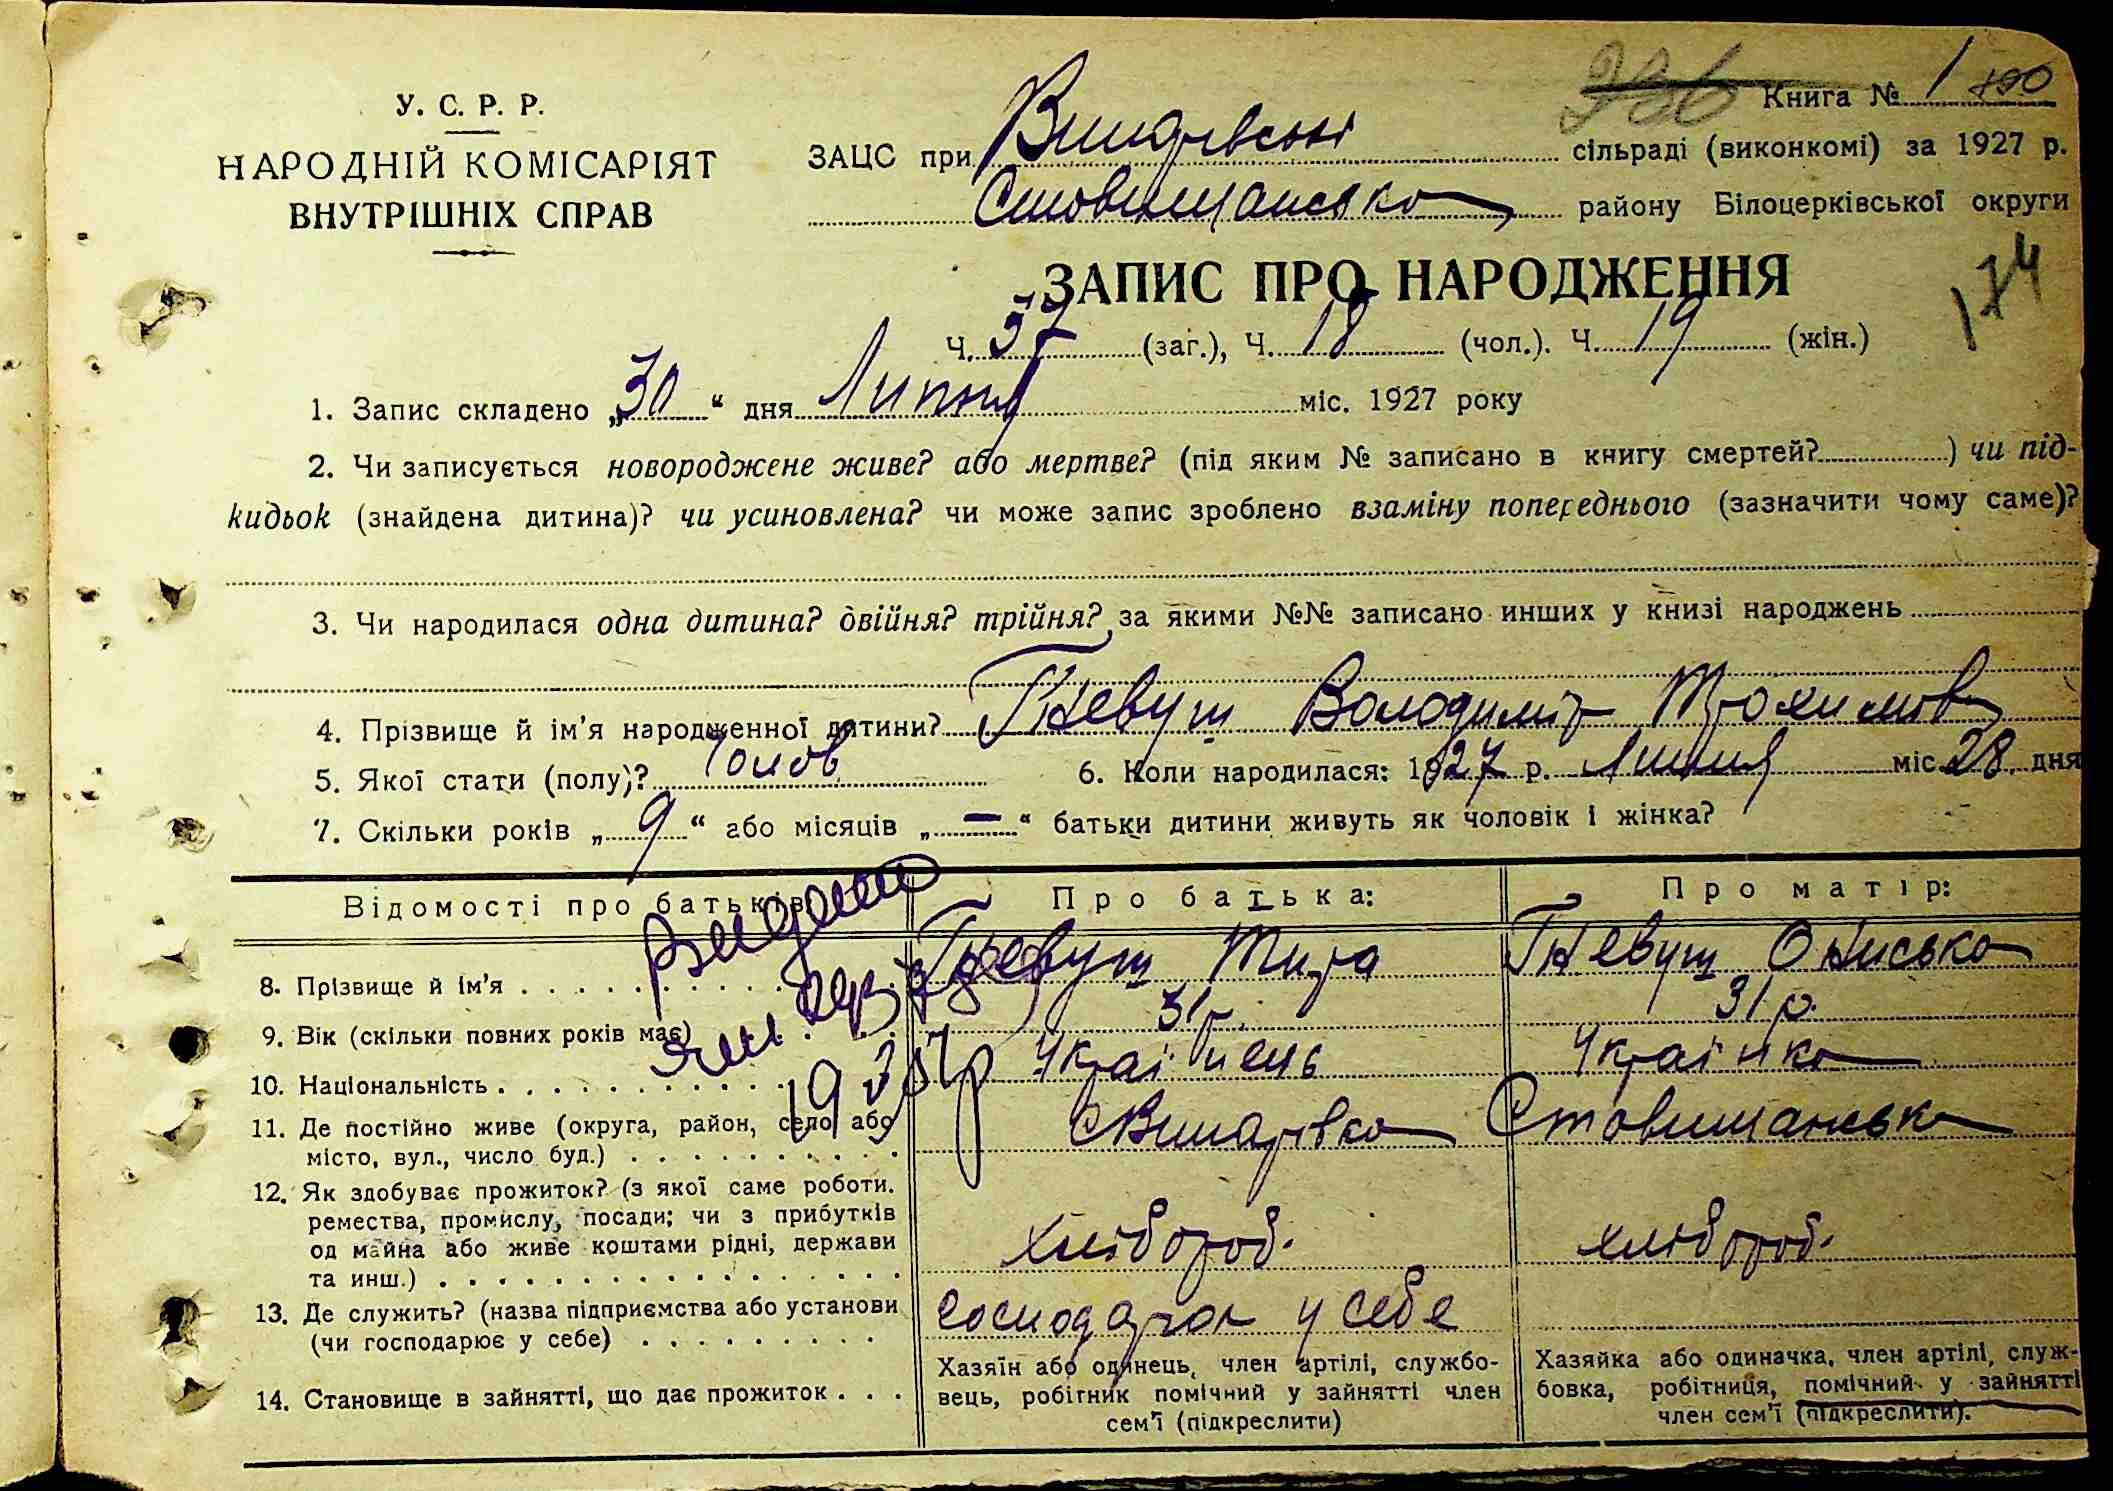 Книга № 1 190
У. С. Р. Р.
НАРОДНІЙ КОМІСАРІЯТ
ВНУТРІШНІХ СПРАВ
ЗАЦС при сільраді (виконкомі) за 1927 р.
району Білоцерківської округи
174
ЗАПИС ПРО НАРОДЖЕННЯ
Ч. 37 (заг.), Ч. 18 (чол.). Ч. 19 (жін.)
1. Запис складено „30“ дня Липня міс. 1927 року
2. Чи записується новороджене живе? або мертве? (під яким № записано в книгу смертей? ) чи під-
кидьок (знайдена дитина)? чи усиновлена? чи може запис зроблено взаміну попереднього (зазначити чому саме)?
3. Чи народилася одна дитина? двійня? трійня? за якими №№ записано инших у книзі народжень
4. Прізвище й ім'я народженної дитини? Гневуш Володимір Трохимов
5. Якої стати (полу)? 6. Коли народилася: 1927 р. Липня міс. 28 дня
7. Скільки років „ 9 “ або місяців „ — “ батьки дитини живуть як чоловік і жінка?
Відомості про батьків Про батька: Про матір:
8. Прізвище й ім'я Гневуш Гневуш Ониська
9. Вік (скільки повних років має) 31 р. 31 р.
10. Національність Українець Українка
11. Де постійно живе (округа, район, село або
місто, вул., число буд.)
12. Як здобуває прожиток? (з якої саме роботи.
ремества, промислу, посади; чи з прибутків
од майна або живе коштами рідні, держави
та инш.) хлібороб. хлібороб.
13. Де служить? (назва підприємства або установи
(чи господарює у себе) у себе
14. Становище в зайнятті, що дає прожиток
Хазяїн або одинець, член артілі, службо-
вець, робітник помічний у зайнятті член
сем'ї (підкреслити)
Хазяйка або одиначка, член артілі, служ-
бовка, робітниця, помічний у зайнятті
член сем'ї (підкреслити).